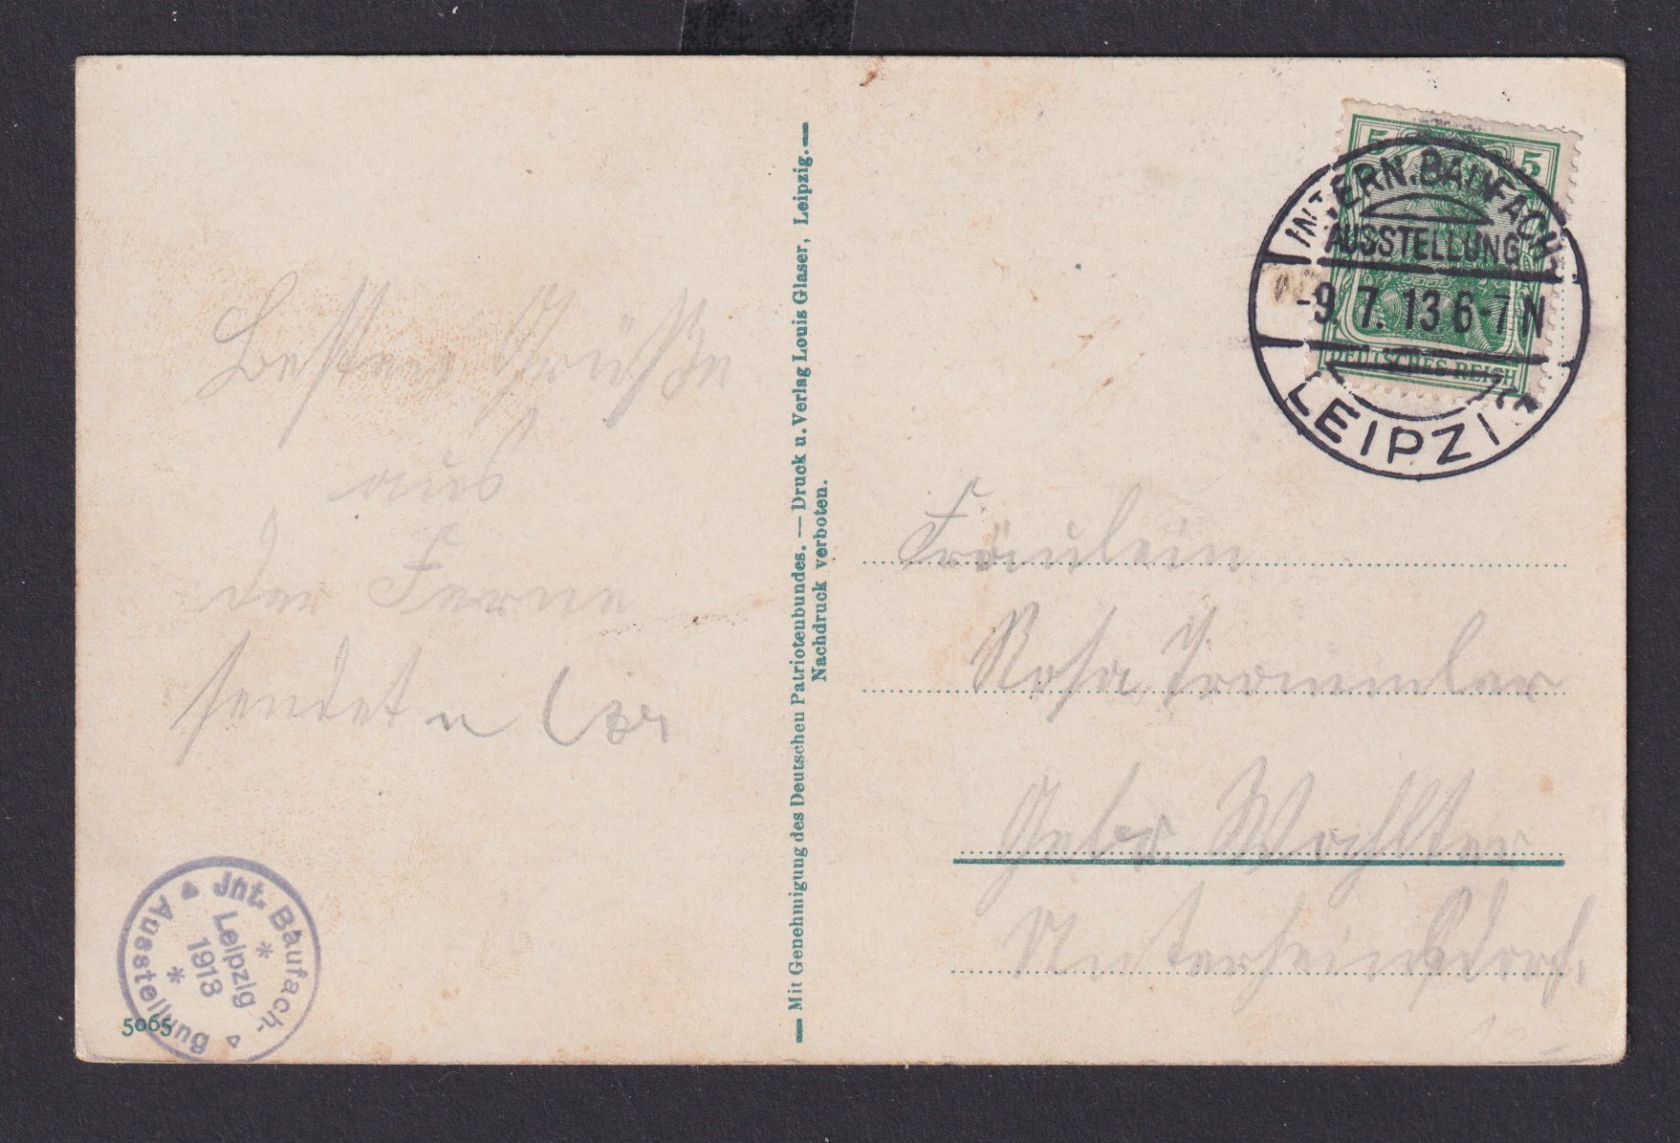 Besten Grüße
aus
der Ferne
sendet
Jnt. Baufach-
Ausstellung
Leipzig
1913
5065
Mit Genehmigung des Deutschen Patriotenbundes. — Druck u. Verlag Louis Glaser, Leipzig.
Nachdruck verboten.
5 5
DEUTSCHES REICH
INTERN. BAUFACH-
AUSSTELLUNG
-9.7.13 6-7 N
LEIPZIG
Fräulein
Rosa Trommler
Gebr
Unterheinsdorf.